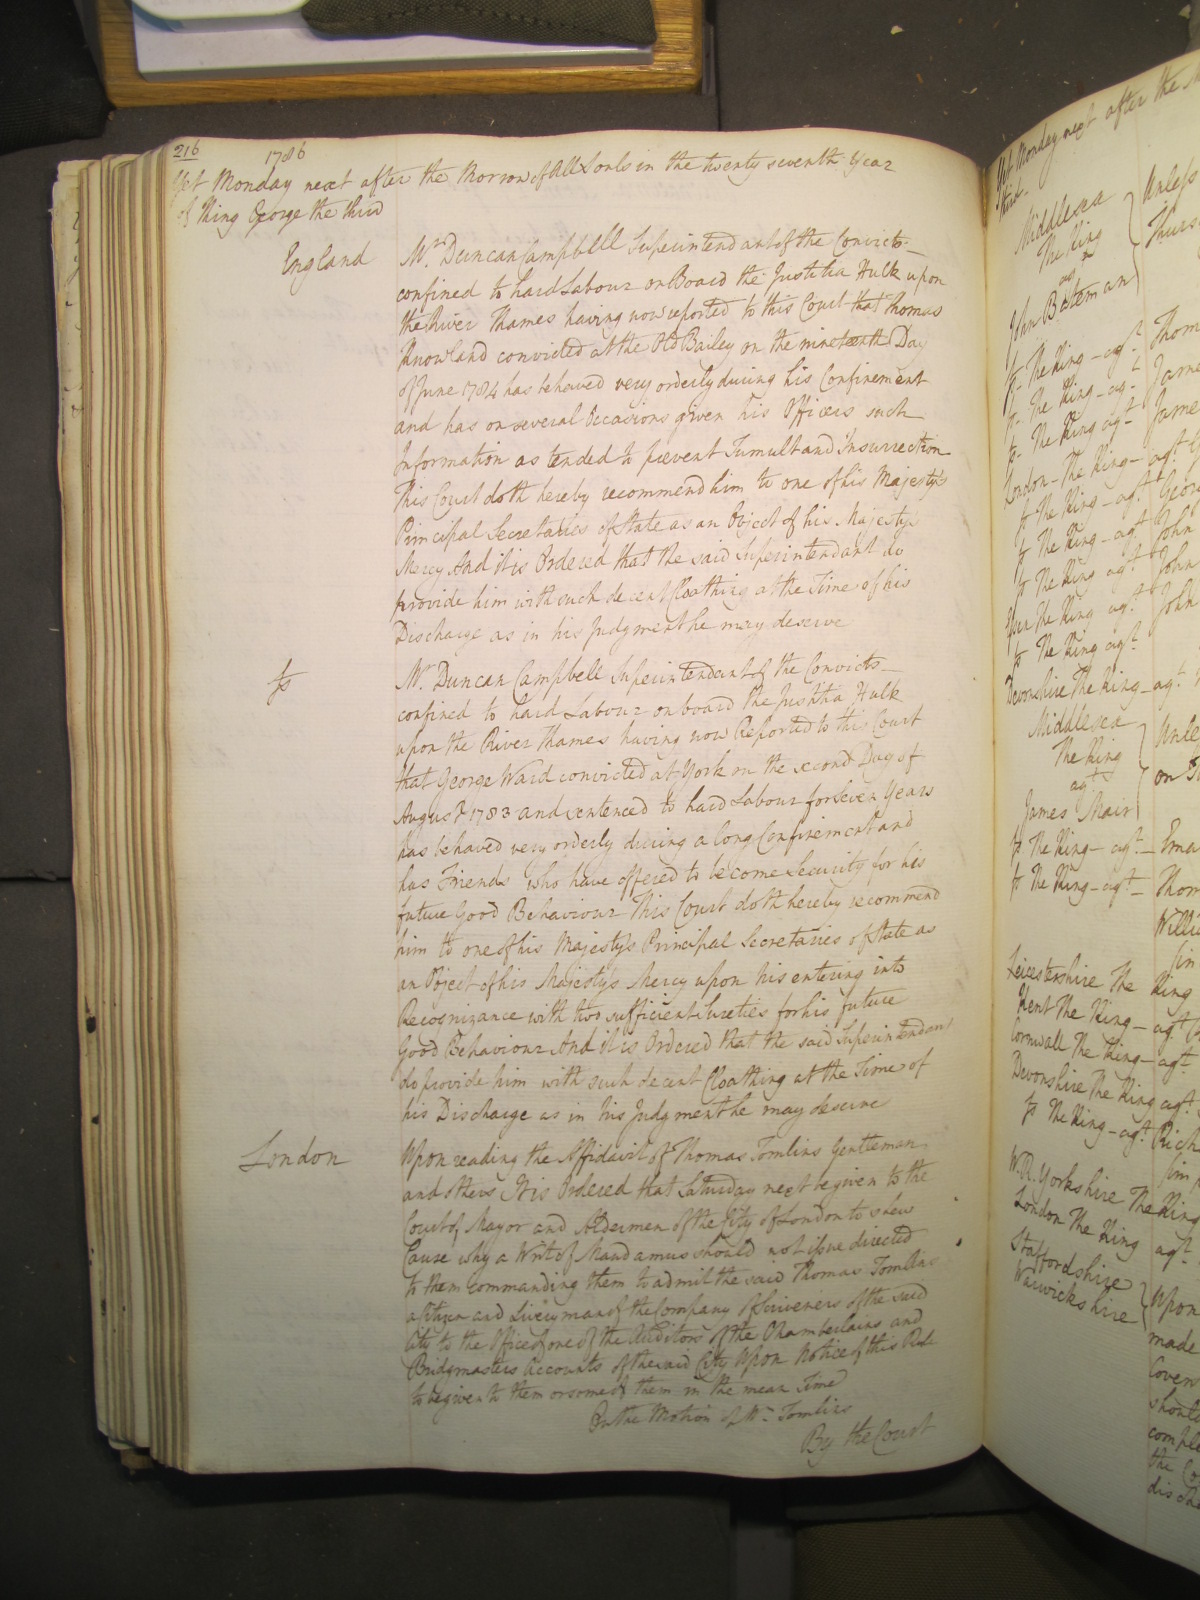 216
1786
Yet Monday next after the Morrow of All Souls in the twenty seventh Year
of King George the third
England
Mr. Duncan Campbell Superintendant of the Convicts
confined to hard Labour on Board the Justitia Hulk upon
the River Thames having now reported to this Court that Thomas
Knowland convicted at the Old Bailey on the nineteenth Day
of June 1784 has behaved very orderly during his Confinement
and has on several Occasions given his Officers such
Information as tended to prevent Tumult and Insurrection
This Court doth hereby recommend him to one of his Majesty's
Principal Secretaries of State as an Object of his Majesty's
Mercy And it is Ordered that the said Superintendant do
provide him with such decent Cloathing at the Time of his
Discharge as in his Judgment he may deserve
Mr. Duncan Campbell Superintendant of the Convicts
confined to hard Labour on board the Justitia Hulk
upon the River Thames having now Reported to this Court
that George Ward convicted at York on the second Day of
August 1783 and sentenced to hard Labour for seven Years
has behaved very orderly during a long Confinement and
has Friends who have offered to become Security for his
future Good Behaviour This Court doth hereby recommend
him to one of his Majesty's Principal Secretaries of State as
an Object of his Majesty's Mercy upon his entering into
Recognizance with two sufficient Sureties for his future
Good Behaviour And it is Ordered that the said Superintendant
do provide him with such decent Cloathing at the Time of
his Discharge as in his Judgment he may deserve
London
Upon reading the Affidavit of Thomas Tomlins Gentleman
and others It is Ordered that Saturday next be given to the
Court of Mayor and Aldermen of the City of London to shew
Cause why a Writ of Mandamus should not issue directed
to them commanding them to admit the said Thomas Tomlins
a Citizen and Liveryman of the Company of Scriveners of the said
City to the Office of one of the Auditors of the Chamberlains and
Bridgmasters Accounts of the said City Upon Notice of this Rule
to be given to them or some of them in the mean Time
On the Motion of Mr. Tomlins
By the Court
Yet Monday next after the
third
Middlesex
The King
agt
John Bateman
Unless
Thurs
The King agt. Thom
The King agt. Jame
The King agt. Jame
London The King agt.
The King agt. Geor
The King agt. John
The King agt. John
The King agt. John
The King agt.
Devonshire The King agt.
Middlesex
The King
agt
James Mair
Unle
on
The King agt. Ema
The King agt. Thom
Willi
Leicestershire The King
Kent The King agt.
Cornwall The King agt.
Devonshire The King agt.
The King agt. Rich
W.R. Yorkshire The King
London The King agt.
Staffordshire
Warwickshire
Upon
made
Coven
should
comple
the Co